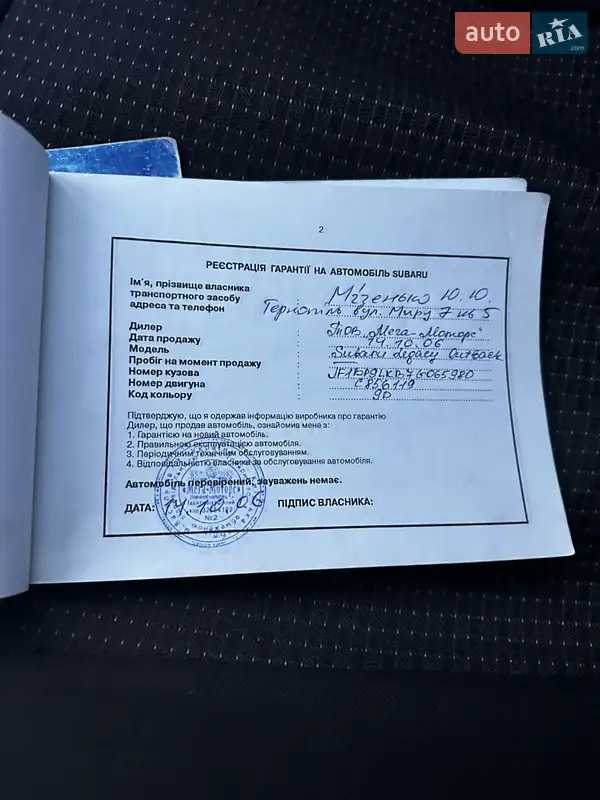 auto RIA .com
2
РЕЄСТРАЦІЯ ГАРАНТІЇ НА АВТОМОБІЛЬ SUBARU
Ім'я, прізвище власника
транспортного засобу : Мізенько Ю.Ю.
адреса та телефон Тернопіль вул. Миру 7 кв 5
Дилер : ТОВ „Мега-Моторс"
Дата продажу : 14.10.06
Модель : Subaru Legacy Outback
Пробіг на момент продажу : —
Номер кузова :
Номер двигуна : C856119
Код кольору : 9D
Підтверджую, що я одержав інформацію виробника про гарантію
Дилер, що продав автомобіль, ознайомив мене з:
1. Гарантією на новий автомобіль.
2. Правильною експлуатацією автомобіля.
3. Періодичним технічним обслуговуванням.
4. Відповідальністю власника за обслуговування автомобіля.
Автомобіль перевірений, зауважень немає.
ДАТА: 14.10.06 ПІДПИС ВЛАСНИКА:
«Мега-Моторс»
№2